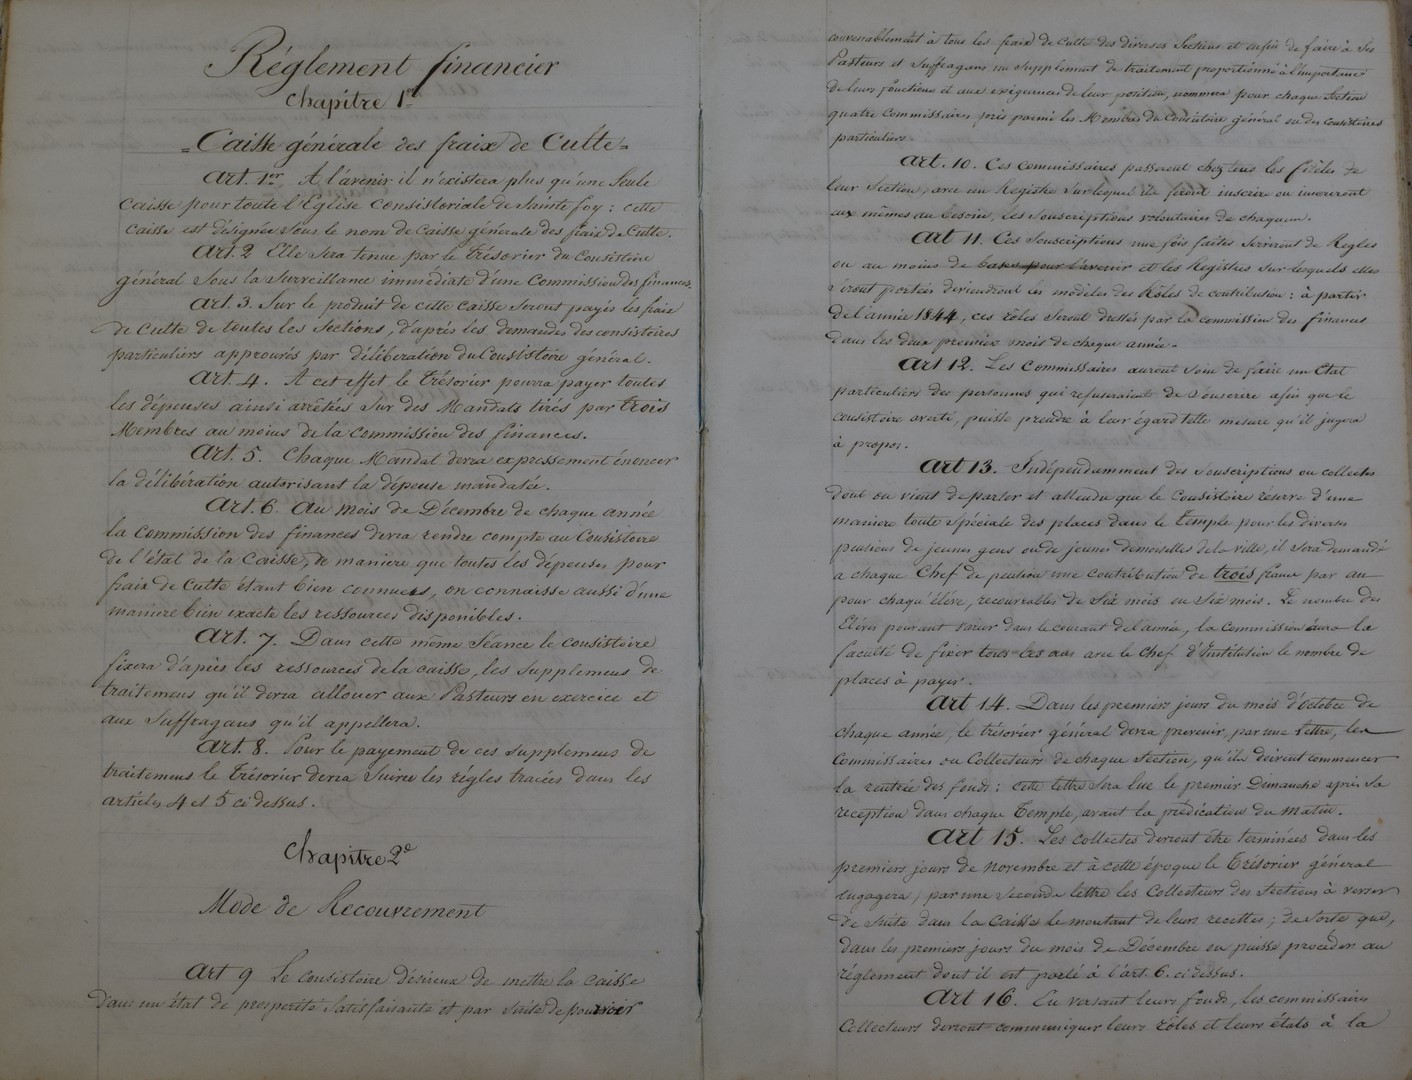 Réglement financier
Chapitre 1er
= Caisse générale des fraix de Culte =
Art. 1er. A l'avenir il n'existera plus qu'une Seule
Caisse pour toute l'Eglise Consistoriale de Sainte foy: cette
Caisse est désignée sous le nom de Caisse générale des fraix de Culte.
Art. 2 Elle sera tenue par le Trésorier du Consistoire
général sous la surveillance immédiate d'une Commission des finances.
Art. 3. Sur le produit de cette caisse seront payés les fraix
de Culte de toutes les Sections, d'après les demandes des consistoires
particuliers approuvés par délibération du Consistoire général.
Art. 4. A cet effet le Trésorier pourra payer toutes
les dépenses ainsi arrêtées sur des Mandats tirés par trois
Membres au moins de la Commission des finances.
Art. 5. Chaque Mandat devra expressement énoncer
la délibération autorisant la dépense mandatée.
Art. 6. Au mois de Décembre de chaque année
la Commission des finances devra rendre compte au Consistoire
de l'état de la Caisse, de maniere que toutes les dépenses pour
fraix de Culte étant bien connues, on connaisse aussi d'une
maniere bien exacte les ressources disponibles.
Art. 7. Dans cette même Séance le consistoire
fixera d'après les ressources de la caisse, les supplemens de
traitemens qu'il devra allouer aux Pasteurs en exercice et
aux Suffragans qu'il appellera.
Art. 8. Pour le payement de ces supplemens de
traitemens le Trésorier devra suivre les régles tracées dans les
articles 4 et 5 ci dessus.
Chapitre 2e
Mode de Recouvrement
Art 9 Le Consistoire désireux de mettre la caisse
dans un état de prosperité satisfaisante et par suite de pourvoir
convenablement à tous les fraix de Culte des diverses Sections et enfin de faire à ses
Pasteurs et Suffragans un supplement de traitement proportionné à l'importance
de leurs fonctions et aux exigences de leur position, nommera pour chaque Section
quatre Commissaires pris parmi les Membres du Consistoire général ou des Consistoires
particuliers.
Art. 10. Ces Commissaires passeront chez tous les fidèles de
leur Section, avec un Registre sur lequel ils feront inscrire ou inscriront
eux mêmes au besoin, les Souscriptions volontaires de chacun.
Art 11. Ces Souscriptions une fois faites serviront de Regles
ou au moins de bases pour l'avenir et les Registres sur lesquels elles
seront portées deviendront les modèles des Rôles de contribution: à partir
de l'année 1844, ces rôles seront dressés par la commission des finances
dans les deux premiers mois de chaque année.
Art 12. Les Commissaires auront soin de faire un Etat
particuliers des personnes qui refuseraient de souscrire afin que le
consistoire averti, puisse prendre à leur égard telle mesure qu'il jugera
à propos.
Art 13. Indépendamment des souscriptions ou collectes
dont on vient de parler et attendu que le Consistoire réserve d'une
maniere toute spéciale des places dans le Temple pour les diverses
pensions de jeunes gens ou de jeunes demoiselles de la ville, il sera demandé
a chaque Chef de pension une contribution de trois francs par an
pour chaqu'élève, recouvrables de six mois en six mois. Le nombre des
Elèves pouvant varier dans le courant de l'année, la Commission aura la
faculté de fixer tous les ans avec le Chef d'Institution le nombre de
places à payer.
Art 14. Dans les premiers jours du mois d'Octobre de
chaque année, le trésorier général devra prevenir, par une lettre, les
Commissaires ou Collecteurs de chaque Section, qu'ils doivent commencer
la rentrée des fonds: cette lettre sera lue le premier Dimanche après sa
reception dans chaque Temple, avant la prédication du Matin.
Art 15. Les collectes devront être terminées dans les
premiers jours de Novembre et à cette époque le Trésorier général
engagera, par une Seconde lettre les Collecteurs des Sections à verser
de suite dans la Caisse le montant de leurs recettes; de sorte que,
dans les premiers jours du mois de Décembre on puisse procéder au
réglement dont il est parlé à l'art. 6. ci dessus.
Art 16. En versant leurs fonds, les commissaires
Collecteurs devront communiquer leurs rôles et leurs états à la